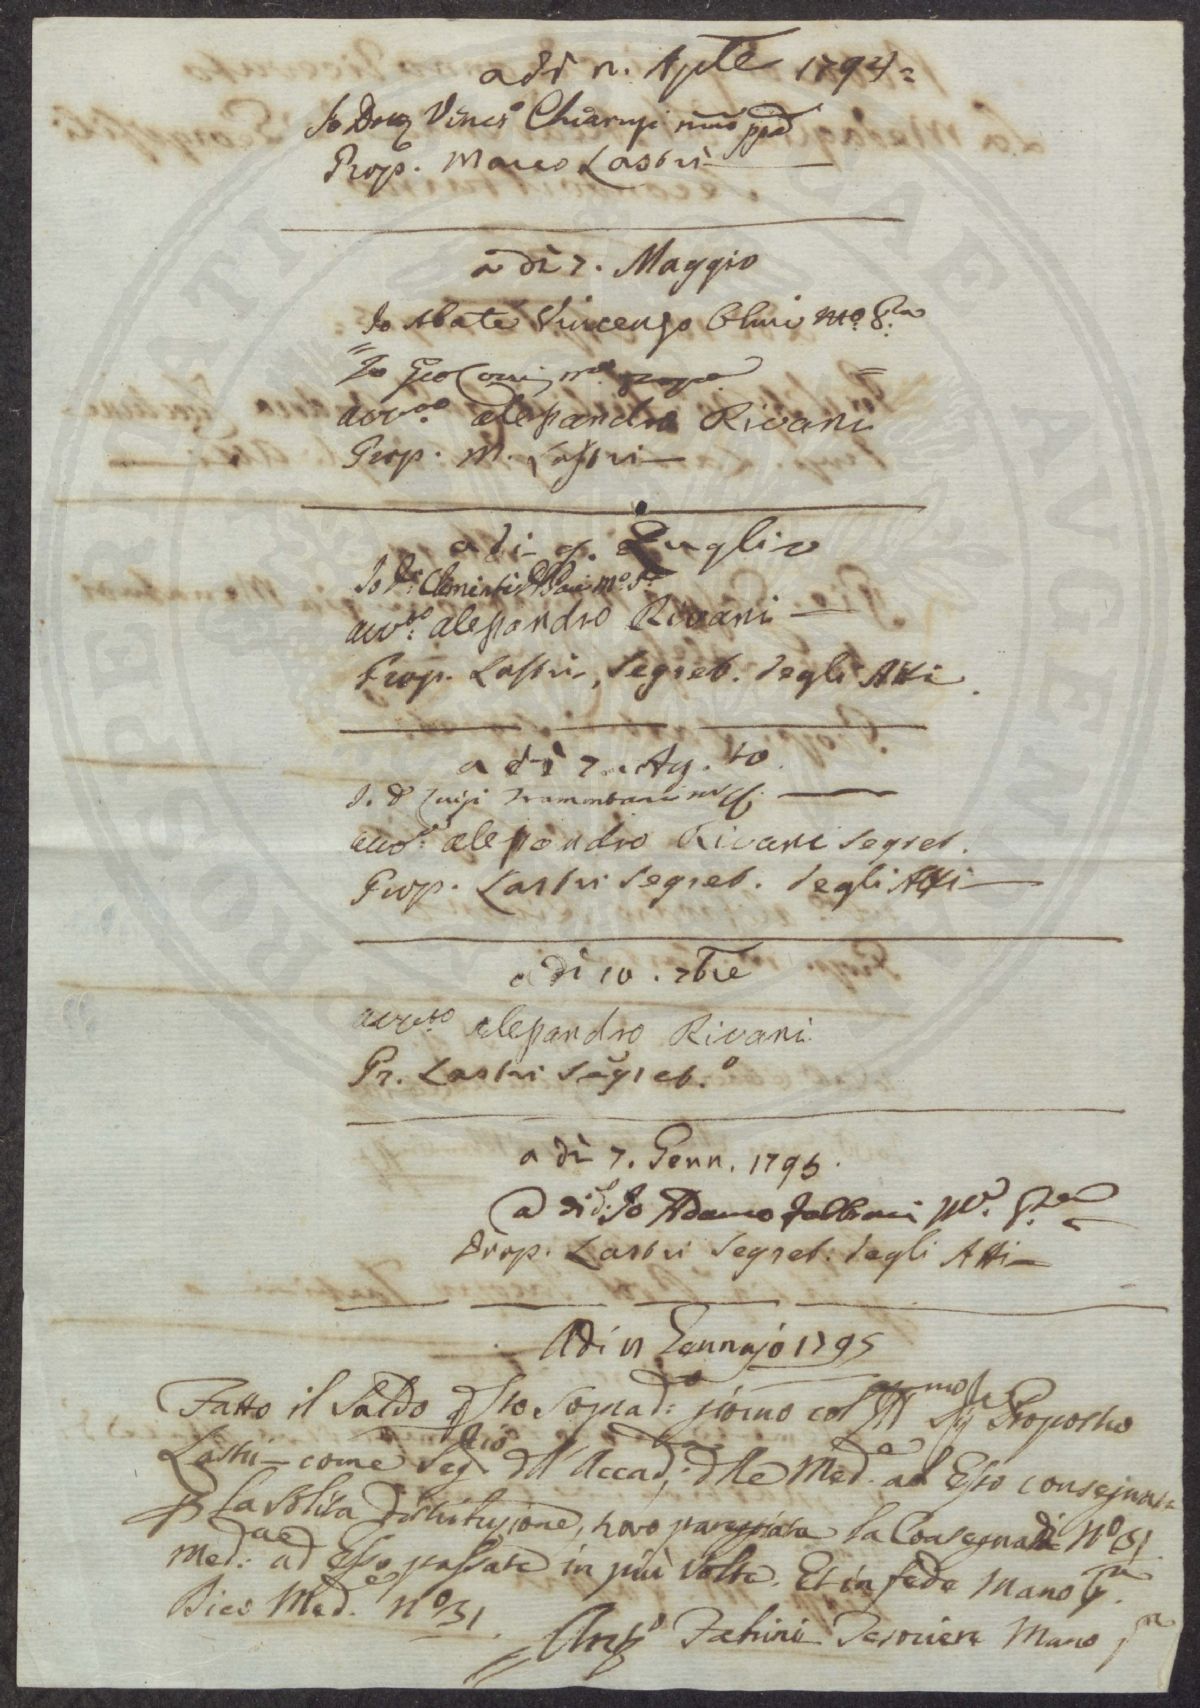 adì Aprile 1794
Io Dott Vinc.o Chiarugi mno pp.a
Prop. Marco Lastri
a dì 7. Maggio
Io Abate Vincenzo Chini Mo. p.a
avv.to Alessandro Rivani
Prop. M. Lastri
a di 9. Luglio
Io
avv.to Alessandro Rivani
Prop. Lastri, Segret. degli Atti
a dì 7. Ag.to
Luigi Tramontani
avv.to Alessandro Rivani Segret.
Prop. Lastri Segret. degli Atti
a dì 10. 7bre
avv.to Alessandro Rivani
Pr. Lastri Segret.o
a dì 7. Genn. 1795.
a di d.o Io Adamo Fabbroni
Prop. Lastri Segret. degli Atti
Adi 11 Gennajo 1795
Fatto il Saldo questo Sograd: giorno col Sig Proposto
Lastri come Seg.rio dell'Accad: delle Med.e ad Esso consegnate
p la solita distribuzione, trovo pareggiata la Consegna di No 31
Med: ad Esso passate in più volte. Et in fede Mano p.a
Dico Med.e No 31.
Fabrini Tesoriere Mano p.a